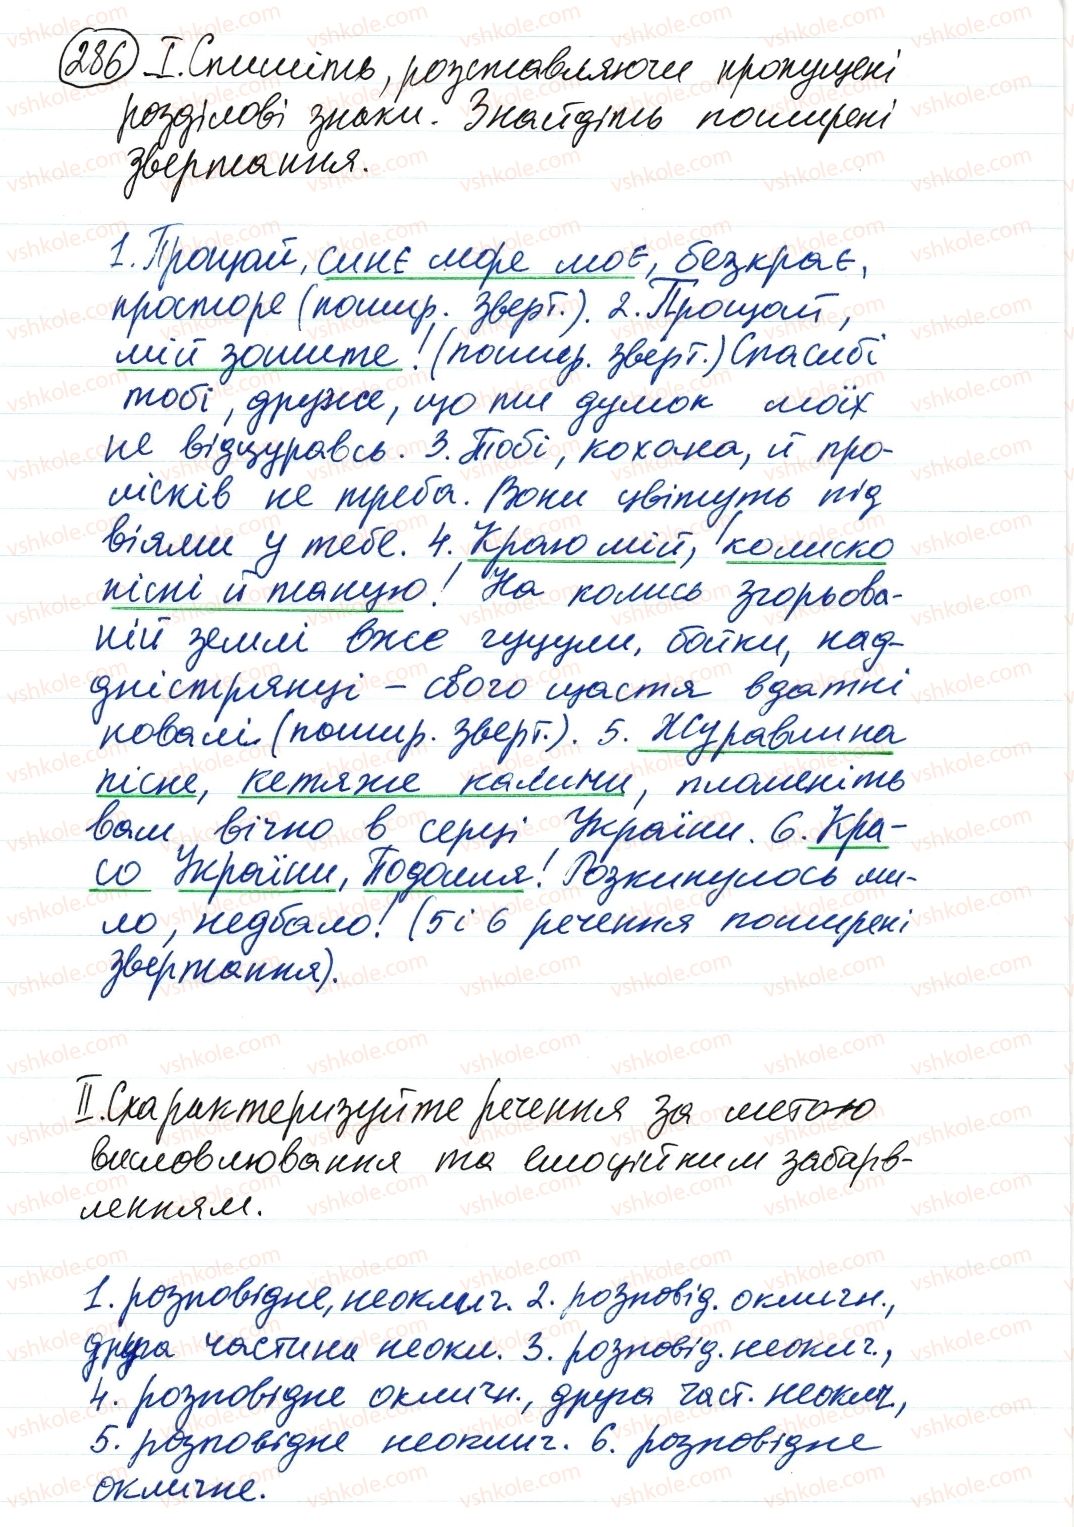 286 I. Спишіть, розставляючи пропущені
розділові знаки. Знайдіть поширені
звертання.
1. Прощай, синє море моє, безкрає,
просторе (пошир. зверт.). 2. Прощай,
мій зошите! (пошир. зверт.) Спасибі
тобі, друже, що ти думок моїх
не відцуравсь. 3. Тобі, кохана, й про-
лісків не треба. Вони цвітуть під
віями у тебе. 4. Краю мій, колиско
пісні й танцю! На колись згорьова-
ній землі вже гуцули, бойки, над-
дністрянці – свого щастя вдатні
ковалі (пошир. зверт.). 5. Журавлина
пісне, кетяже калини, пломеніть
вам вічно в серці України. 6. Кра-
со України, Подолля! Розкинулось ми-
ло, недбало! (5 і 6 речення поширені
звертання).
II. Схарактеризуйте речення за метою
висловлювання та емоційним забарв-
ленням.
1. розповідне, неоклич. 2. розповід. окличн.,
друга частина неокл. 3. розповід. неоклич.,
4. розповідне окличн., друга част. неоклич.,
5. розповідне неоклич. 6. розповідне
окличне.